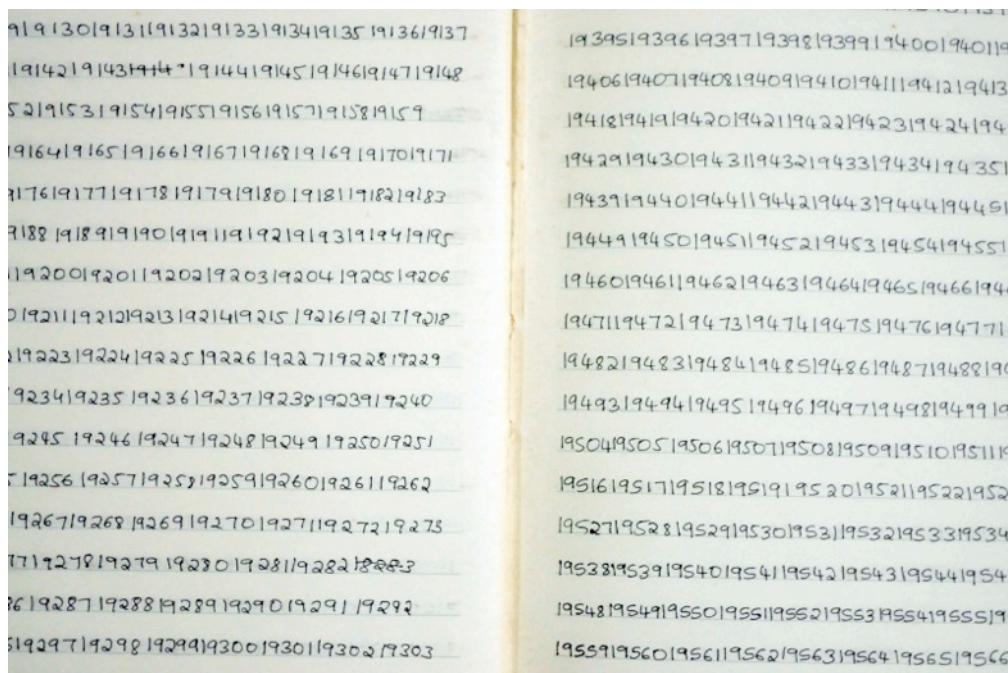 91913019131191321913319134191351913619137
19142191431914 191441914519146191471914​8
5219153191541915519156191571915819159
9164191651916619167191681916919170​19171
9176191771917819179191801918119182​19183
9188191891919019191191921919319194​19195
19200192011920219203192041920519206
019211192121921319214192151921619217​19218
219223192241922519226192271922819229
9234192351923619237192381923919240
19245192461924719248192491925019251
519256192571925819259192601926119262
19267192681926919270192711927219273
7719278192791928019281192821​9283
8619287192881928919290192911​9292
519297192981929919300193011930219303
193951939619397193981939919400194011​9
194061940719408194091941019411194121​9413
1941819419194201942119422194231942419​4
194291943019431194321943319434194351
194391944019441194421944319444194451
194491945019451194521945319454194551
1946019461194621946319464194651946619​4
194711947219473194741947519476194771
1948219483194841948519486194871948819​4
1949319494194951949619497194981949919
1950419505195061950719508195091951019​51119
195161951719518195191952019521195221​952
195271952819529195301953119532195331​9534
195381953919540195411954219543195441​954
1954819549195501955119552195531955419​55519
195591956019561195621956319564195651​9566